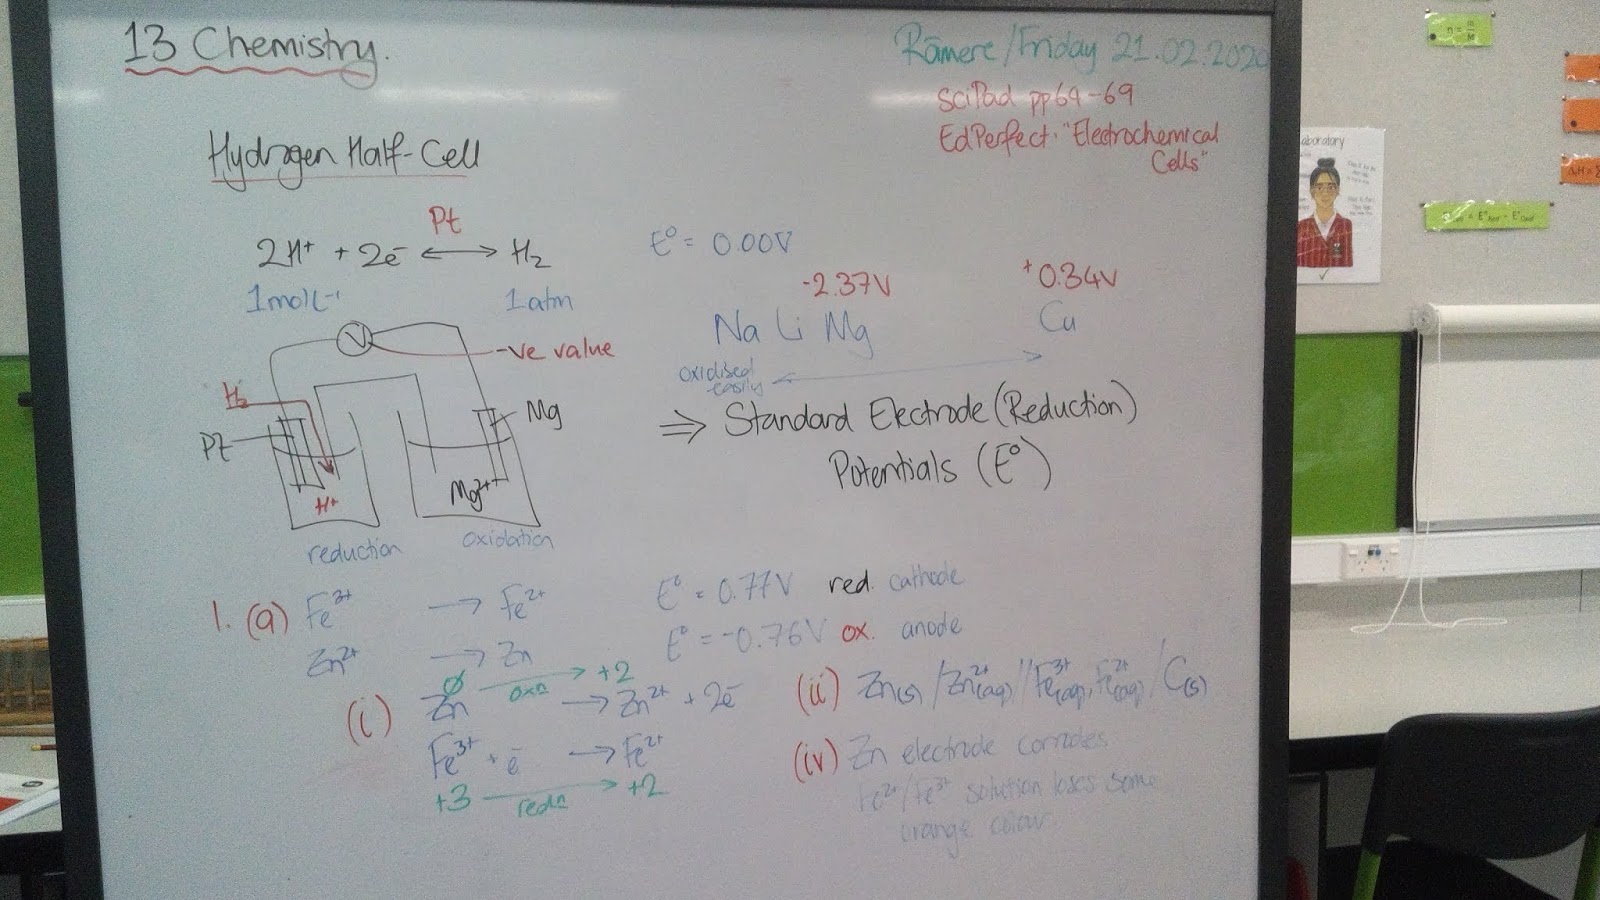 13 Chemistry.
Rāmere/Friday 21.02.2020
SciPad pp64-69
EdPerfect: "Electrochemical
Cells"
Hydrogen Half-Cell
Pt
2H⁺ + 2e⁻ ⟷ H₂
E⁰ = 0.00V
1molL⁻¹
1atm
-2.37V
+0.34V
Na Li Mg
Cu
oxidised
easily
V
-ve value
H₂
Pt
H⁺
Mg
Mg²⁺
reduction
oxidation
⇒ Standard Electrode (Reduction)
Potentials (E⁰)
1. (a) Fe³⁺ → Fe²⁺
E⁰ = 0.77V red. cathode
Zn²⁺ → Zn
E⁰ = -0.76V ox. anode
0 → +2
oxn
(i) Zn → Zn²⁺ + 2e⁻
Fe³⁺ + e⁻ → Fe²⁺
+3 → +2
redn
(ii) Zn(s) / Zn²⁺(aq) // Fe³⁺(aq), Fe²⁺(aq) / C(s)
(iv) Zn electrode corrodes
Fe²⁺/Fe³⁺ solution loses some
orange colour.
aboratory
n = m/M